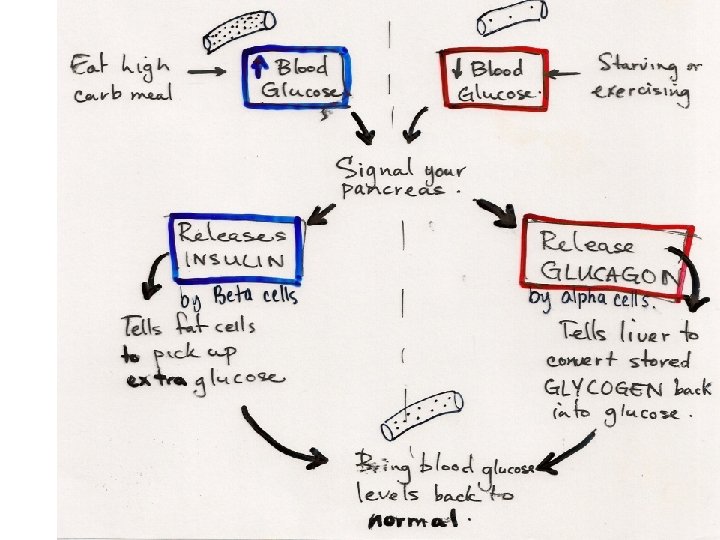 Eat high
carb meal
↑ Blood
Glucose
↓ Blood
Glucose.
Starving or
exercising
Signal your
pancreas.
Releases
INSULIN
by Beta cells
Tells fat cells
to pick up
extra glucose
Release
GLUCAGON
by alpha cells.
Tells liver to
convert stored
GLYCOGEN back
into glucose.
Bring blood glucose
levels back to
normal.